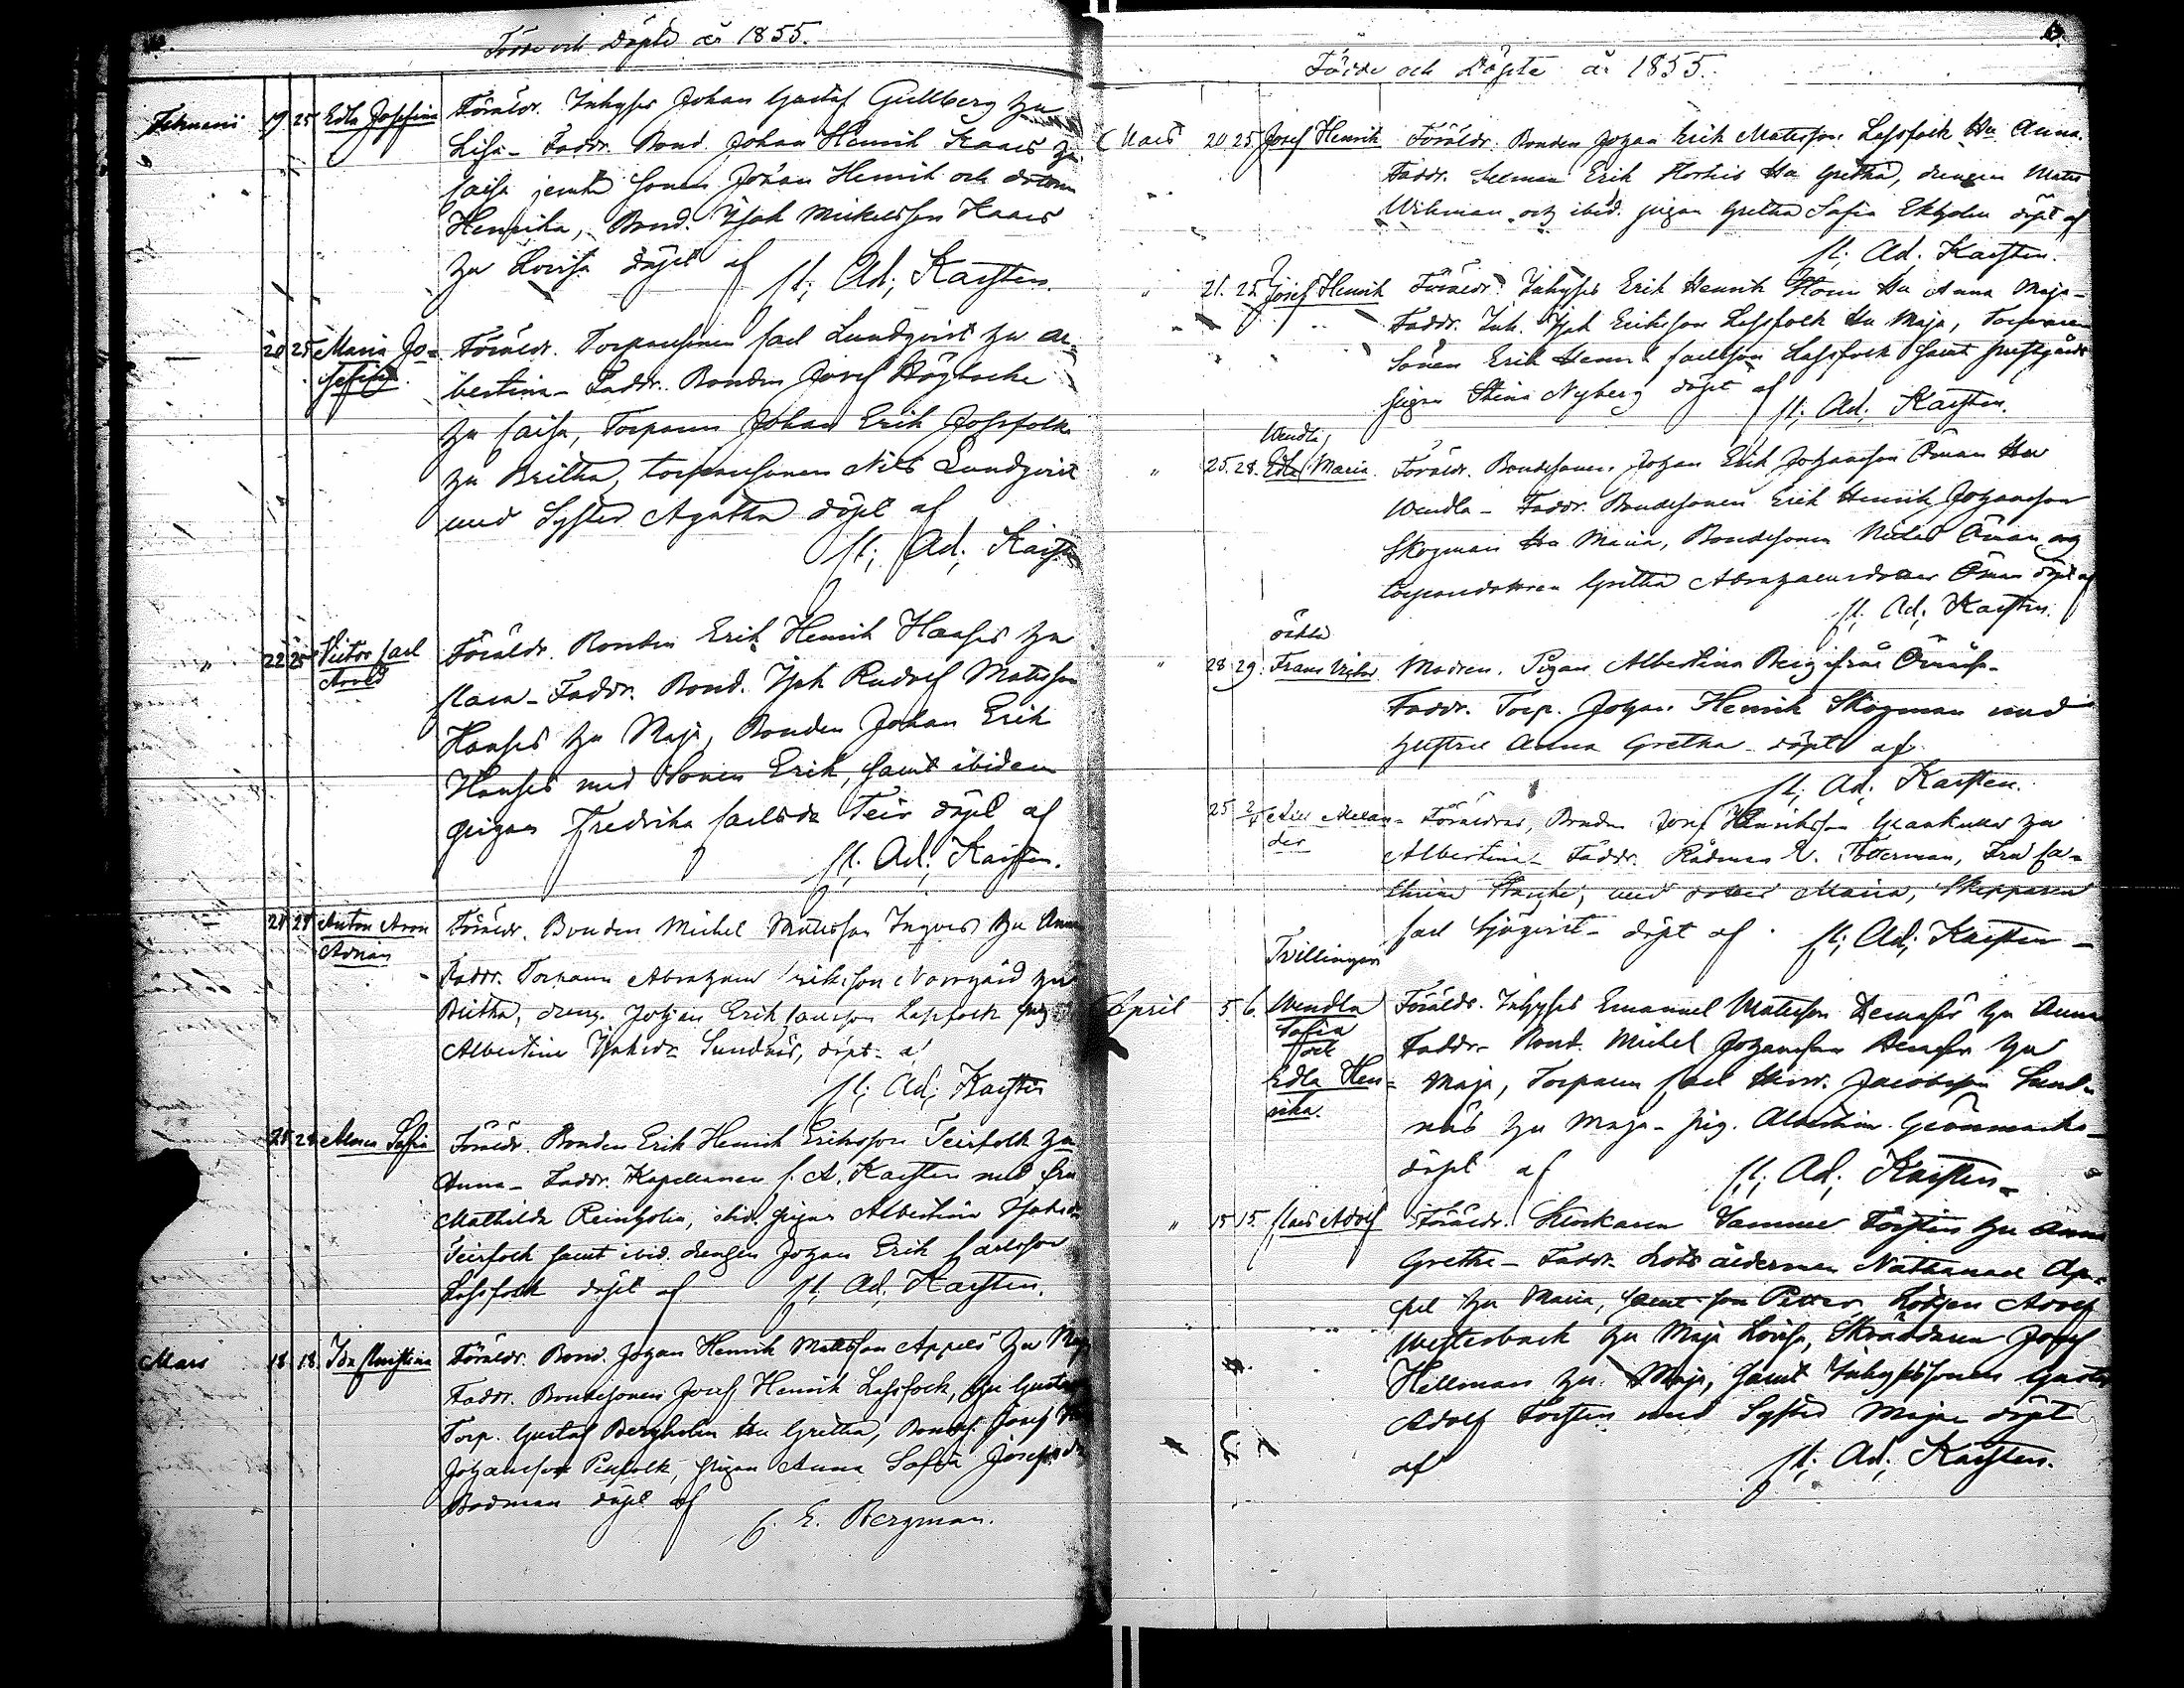 Födde och Döpte år 1855.
Februari 19 25 Edla Josefina Föräldr. Inhyses Johan Gustaf Gullberg hu
Lisa - Faddr. Bond. Johan Henrik Kaars hu
Caisa jemte sonen Johan Henrik och dottern
Henrika, Bond. Isak Mickelsson Kaars
hu Lovisa döpt af Cl. Ad. Karsten.
20 25 Maria Jo- Föräldr. Torparesonen Carl Lundqvist hu Al-
sefina. bertina - Faddr. Bonden Josef Högbacka
hu Caisa, Torparen Johan Erik Jossfolk
hu Britha, torparesonen Nils Lundqvist
med Syster Agatha döpt af
Cl. Ad. Karsten
" 22 25 Victor Carl Föräldr. Bonden Erik Henrik Hanses hu
Arvid Clara - Faddr. Bond. Isak Rudolf Matsson
Hanses hu Maja, Bonden Johan Erik
Hanses med Sonen Erik, samt ibidem
pigan Fredrika Carlsdr Teir döpt af
Cl. Ad. Karsten.
Anton Aron Föräldr. Bonden Michel Matsson Ingves hu Anna
Adrian
Faddr. Torparen Abraham Eriksson Norrgård hu
Britha, dreng. Johan Erik Carlsson Lassfolk pig.
Albertina Isaksdr Sundnäs, döpt af
Cl. Ad. Karsten
Alma Sofia Föräldr. Bonden Erik Henrik Eriksson Teirfolk hu
Anna - Faddr. Kapellanen C. A. Karsten med fru
Mathilda Reinholin, ibid. pigan Albertina Isaksdr
Teirfolk samt ibid. drengen Johan Erik Carlsson
Lassfolk döpt af Cl. Ad. Karsten.
Mars 18 18 Ida Christina Föräldr. Bond. Johan Henrik Mattsson Appels hu Maja
Faddr. Bondesonen Josef Henrik Lassfolk, hu
Torp. Gustaf Bergholm hu Gretha, Bondes. Josef
Johansson Penfolk, pigan Anna Sofia Josefsdr
Bodman döpt af
C. E. Bergman.
Födde och Döpte år 1855.
Mars 20 25 Josef Henrik Föräldr. Bonden Johan Erik Matsson Lassfolk hu Anna.
Faddr. Erik hu Gretha, drengen Mats
Wikman och ibid. pigan Gretha Sofia Ekholm döpt af
Cl. Ad. Karsten.
" 21. 25. Josef Henrik Föräldr. Inhyses Erik Henrik hu Anna Maja -
Faddr. Inh. Isak Eriksson Lassfolk hu Maja, Torpare
Sonen Erik Henrik Carlsson Lassfolk samt prestgårds
pigan Stina Nyberg döpt af Cl. Ad. Karsten.
Wendla
" 25. 28. Maria. Föräldr. Bondesonen Johan Erik Johansson Öman hu
Wendla - Faddr. Bondesonen Erik Henrik Johansson
Skogman hu Maria, Bondesonen Michel Öman och
torparedottren Gretha Abrahamsdotter Öman döpt af
Cl. Ad. Karsten.
oächta
" 28 29. Frans Victor Modren. Pigan Albertina Berg ifrån
Faddr. Torp. Johan Henrik Skogman med
hustru Anna Gretha - döpt af
Cl. Ad. Karsten.
25 2/4 Alexan- Föräldrar, Bonden Josef Henriksson hu
der Albertina - Faddr. Rådman E. Totterman, Fru Ca-
thrina med dotter Maria, Skepparen
Carl Sjöqvist - döpt af Cl. Ad. Karsten -
Tvillingar
April 5. 6. Wendla Föräldr. Inhyses Emanuel Matsson hu Anna
Sofia Faddr. Bond. Michel Johansson hu
och
Edla Hen- Maja, Torparen Carl Henr. Jacobsson Sund-
rika. näs hu Maja - pig. Albertina
döpt af Cl. Ad. Karsten -
" 15 15. Claes Adolf Föräldr. Klockaren Samuel Forstén hu Anna
Gretha - Faddr. Lots ålderman Nathanael Ap-
pel hu Maria, samt son Petter, Lotsen Adolf
Westerback hu Maja Lovisa, Skräddaren Josef
Hellman hu Maja, samt Inhysessonen Gustaf
Adolf Forstén med Syster Maja döpt
af Cl. Ad. Karsten.